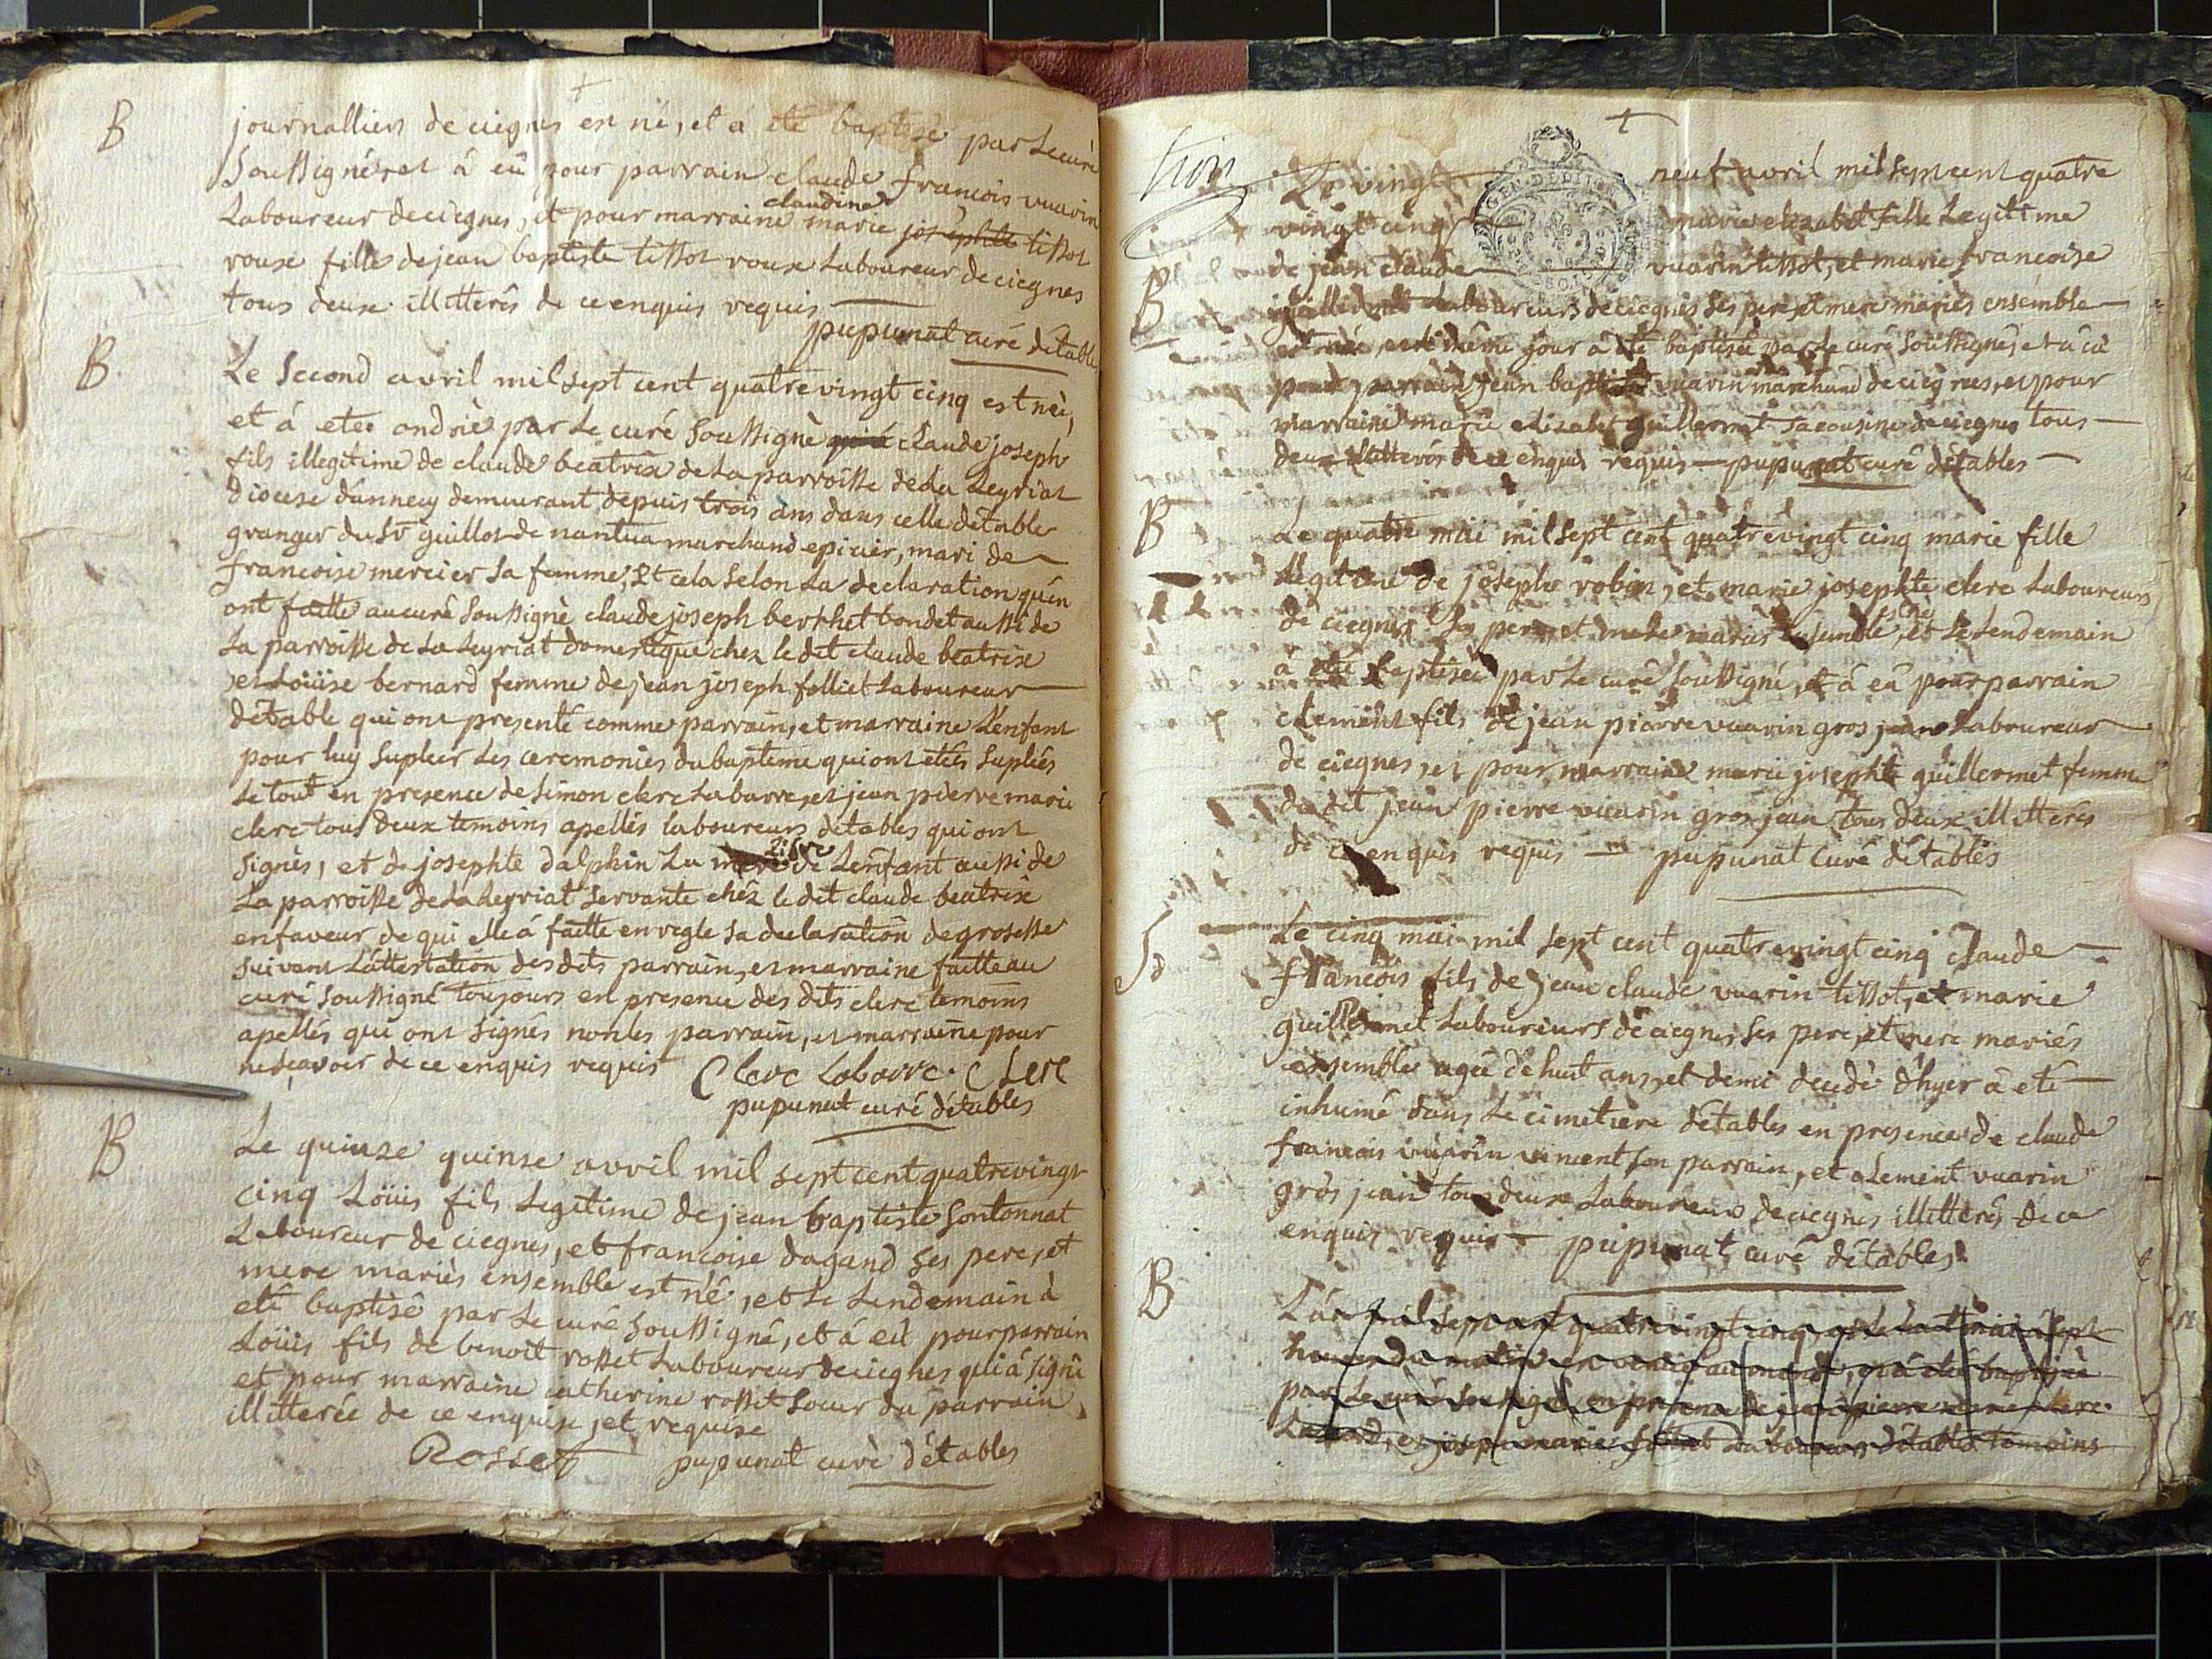 B
journalliers de ciegnes est né, et a été baptisé par le curé
soussigné, et à eû pour parrain claude francois vuarin
laboureur de ciegnes, et pour marraine claudine marie josephte tissot
roux fille de jean baptiste tissot roux laboureur de ciegnes
tous deux illitterés de ce enquis requis
pupunat curé détables
B
Le second avril mil sept cent quatre vingt cinq est né,
et á eté ondoié par le curé soussigné claude joseph
fils illegitime de claude beatrix de la parroisse de la Leyriat
diocese d'annecy demeurant depuis trois ans dans celle détables
granger du Sr guillot de nantua marchand epicier, mari de
francoise mercier sa femme, et cela selon la declaration qu'en
ont faitte au curé soussigné claude joseph berthet bondet aussi de
la parroisse de la Leyriat domestique chez le dit claude beatrix
et Loüise bernard femme de jean joseph folliet laboureur
détable qui ont presenté comme parrain, et marraine l'enfant
pour luy supleer les ceremonies du baptême qui ont etés suplées
le tout en presence de simon clerc labarre, et jean pierre marie
clerc tous deux temoins apellés laboureurs détables qui ont
signés, et de josephte dalphin la de l'enfant aussi de
la parroisse de la Leyriat servante chéz le dit claude beatrix
en faveur de qui elle á faitte en regle sa declaration de grosesse
suivant l'attestation des dits parrain, et marraine faitte au
curé soussigné toujours en presence des dits clerc temoins
apellés qui ont signés non les parrain, et marraine pour
ne sçavoir de ce enquis requis Clerc Labarre. Clerc
pupunat curé détables
B
Le quinze quinse avril mil sept cent quatre vingt
cinq Loüis fils legitime de jean baptiste sontonnat
Laboureur de ciegnes, et francoise dagand ses pere, et
mere mariés ensemble est né, et le lendemain à
eté baptisé par le curé soussigné, et á eû pour parrain
Loüis fils de benoit rosset laboureur de ciegnes qui á signé
et pour marraine catherine rosset soeur du parrain,
illitterée de ce enquise, et requise
Rosset pupunat curé d'étables
Le vingt neuf avril mil sept cent quatre
vingt cinq marie elizabet fille legitime
B
de jean claude vuarin tissot, et marie francoise
guillermet laboureurs de ciegnes ses pere, et mere mariés ensemble
est née, et le même jour à été baptisée par le curé soussigné, et á eû
pour parrain jean baptiste vuarin marchand de ciegnes, et pour
marraine marie elizabet guillermet sa cousine de ciegnes tous
deux illitterés de ce enquis requis pupunat curé détables
B
Le quatre mai mil sept cent quatre vingt cinq marie fille
légitime de josephe robin, et marie josephte clerc laboureurs
de ciegnes ses pere, et mere mariés ensemble est née, et le lendemain
á été baptisée par le curé soussigné, et á eû pour parrain
clement fils de jean pierre vuarin gros jean laboureur
de ciegnes, et pour marraine marie josephte guillermet femme
du dit jean pierre vuarin gros jean tous deux illitterés
de ce enquis requis pupunat curé détables
Le cinq mai mil sept cent quatre vingt cinq claude
francois fils de jean claude vuarin tissot, et marie
guillermet laboureurs de ciegnes ses pere, et mere mariés
ensemble agé de huit ans, et demi decedé d'hyer à eté
inhumé dans le cimetiere détables en presence de claude
francois vuarin vincent son parrain, et clement vuarin
gros jean tous deux laboureurs de ciegnes illitterés de ce
enquis requis pupunat curé détables
B
L'an mil sept cent quatre vingt cinq, et le huit mai á sept
heures du matin baptisé
par le curé soussigné en presence de jean pierre marie clerc
et joseph marie folliet laboureurs détables temoins